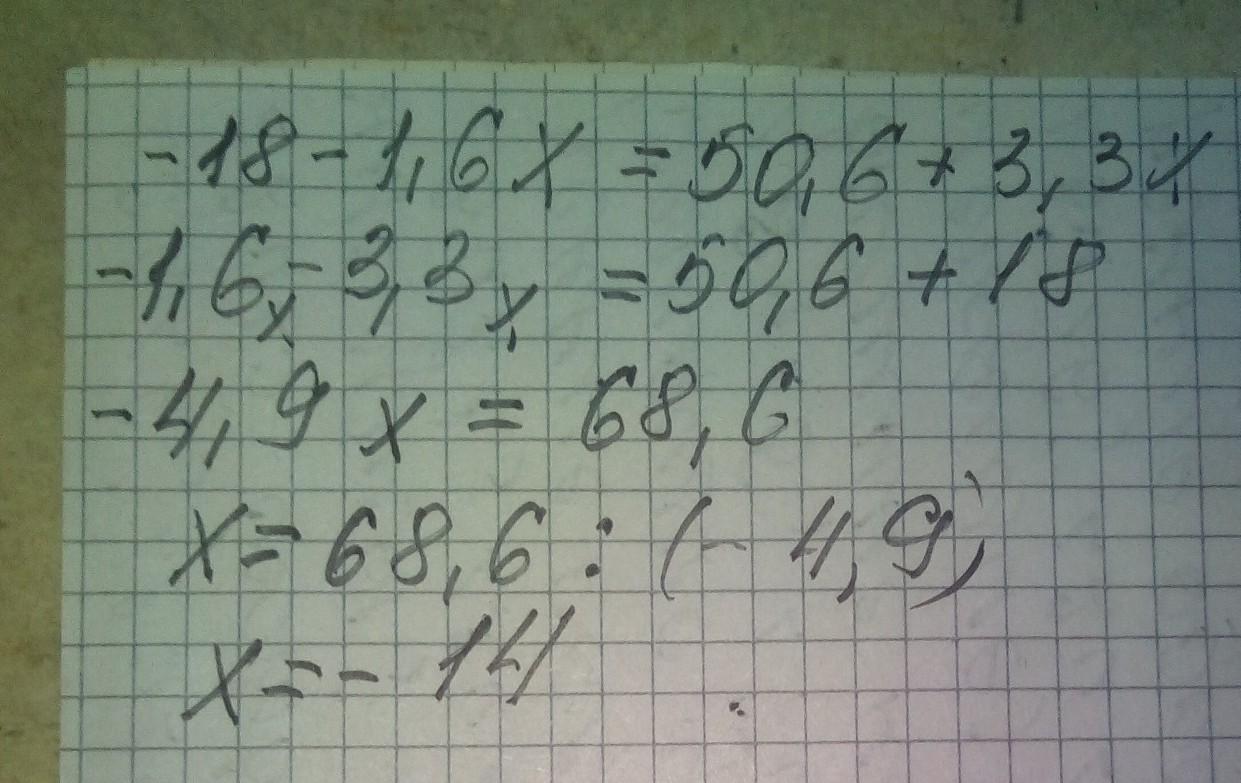 -18-1,6x=50,6+3,3x
-1,6x-3,3x=50,6+18
-4,9x=68,6
x=68,6:(-4,9)
x=-14